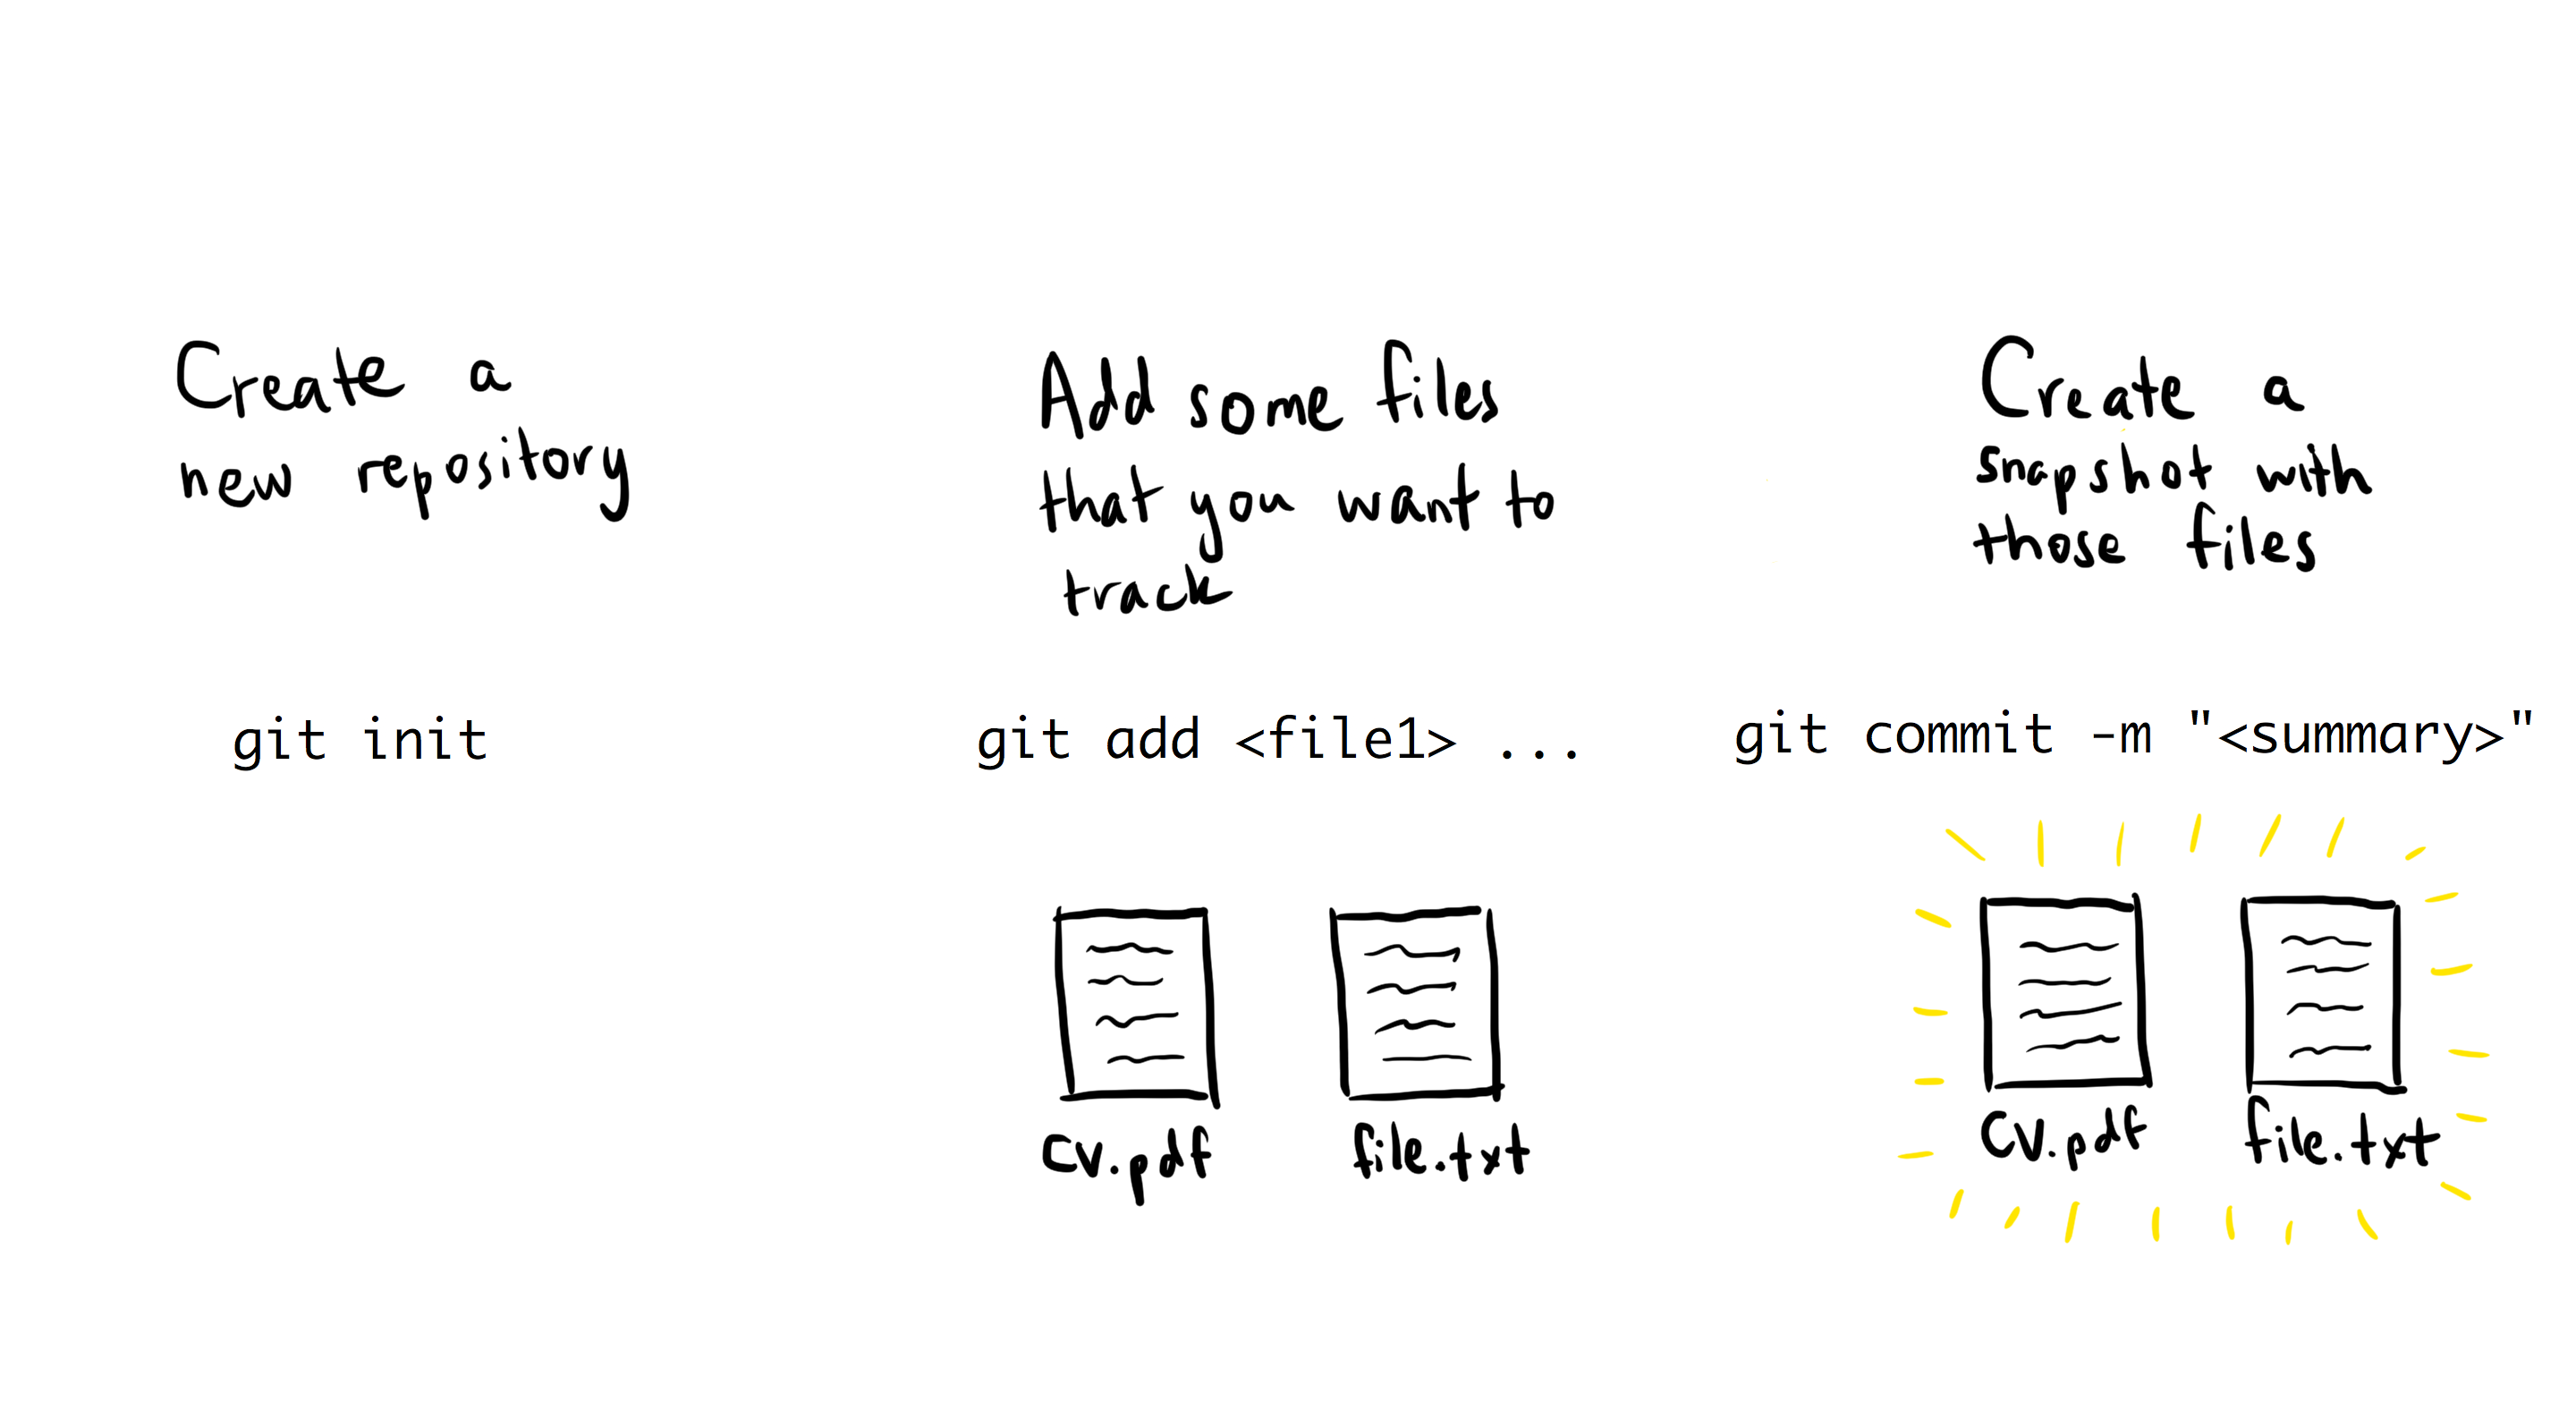 Create a
new repository
git init
Add some files
that you want to
track
git add <file1> ...
cv.pdf
file.txt
Create a
snapshot with
those files
git commit -m "<summary>"
cv.pdf
file.txt